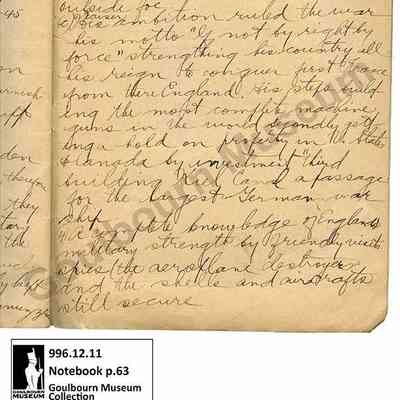 outside foe
Kaisers
c) His ambition ruled the war
his motto "If not by right by
force" strengthing his country all
his reign to conquer first France
from there England. His steps build
ing the most complete machine
guns in the world secondly gett
ing a hold on property in the States
& Canada by investment "third
building Kiel Canal a passage
for the largest German war
ship
4) Complete knowledge of England's
military strength by friendly visits
spies (the aeroplane destroyer
and the shells and aircrafts
still secure
45
on
don
therefore
they
tary
the
Goulbourn Museum
996.12.11
Notebook p.63
Goulbourn Museum
Collection
GOULBOURN
MUSEUM